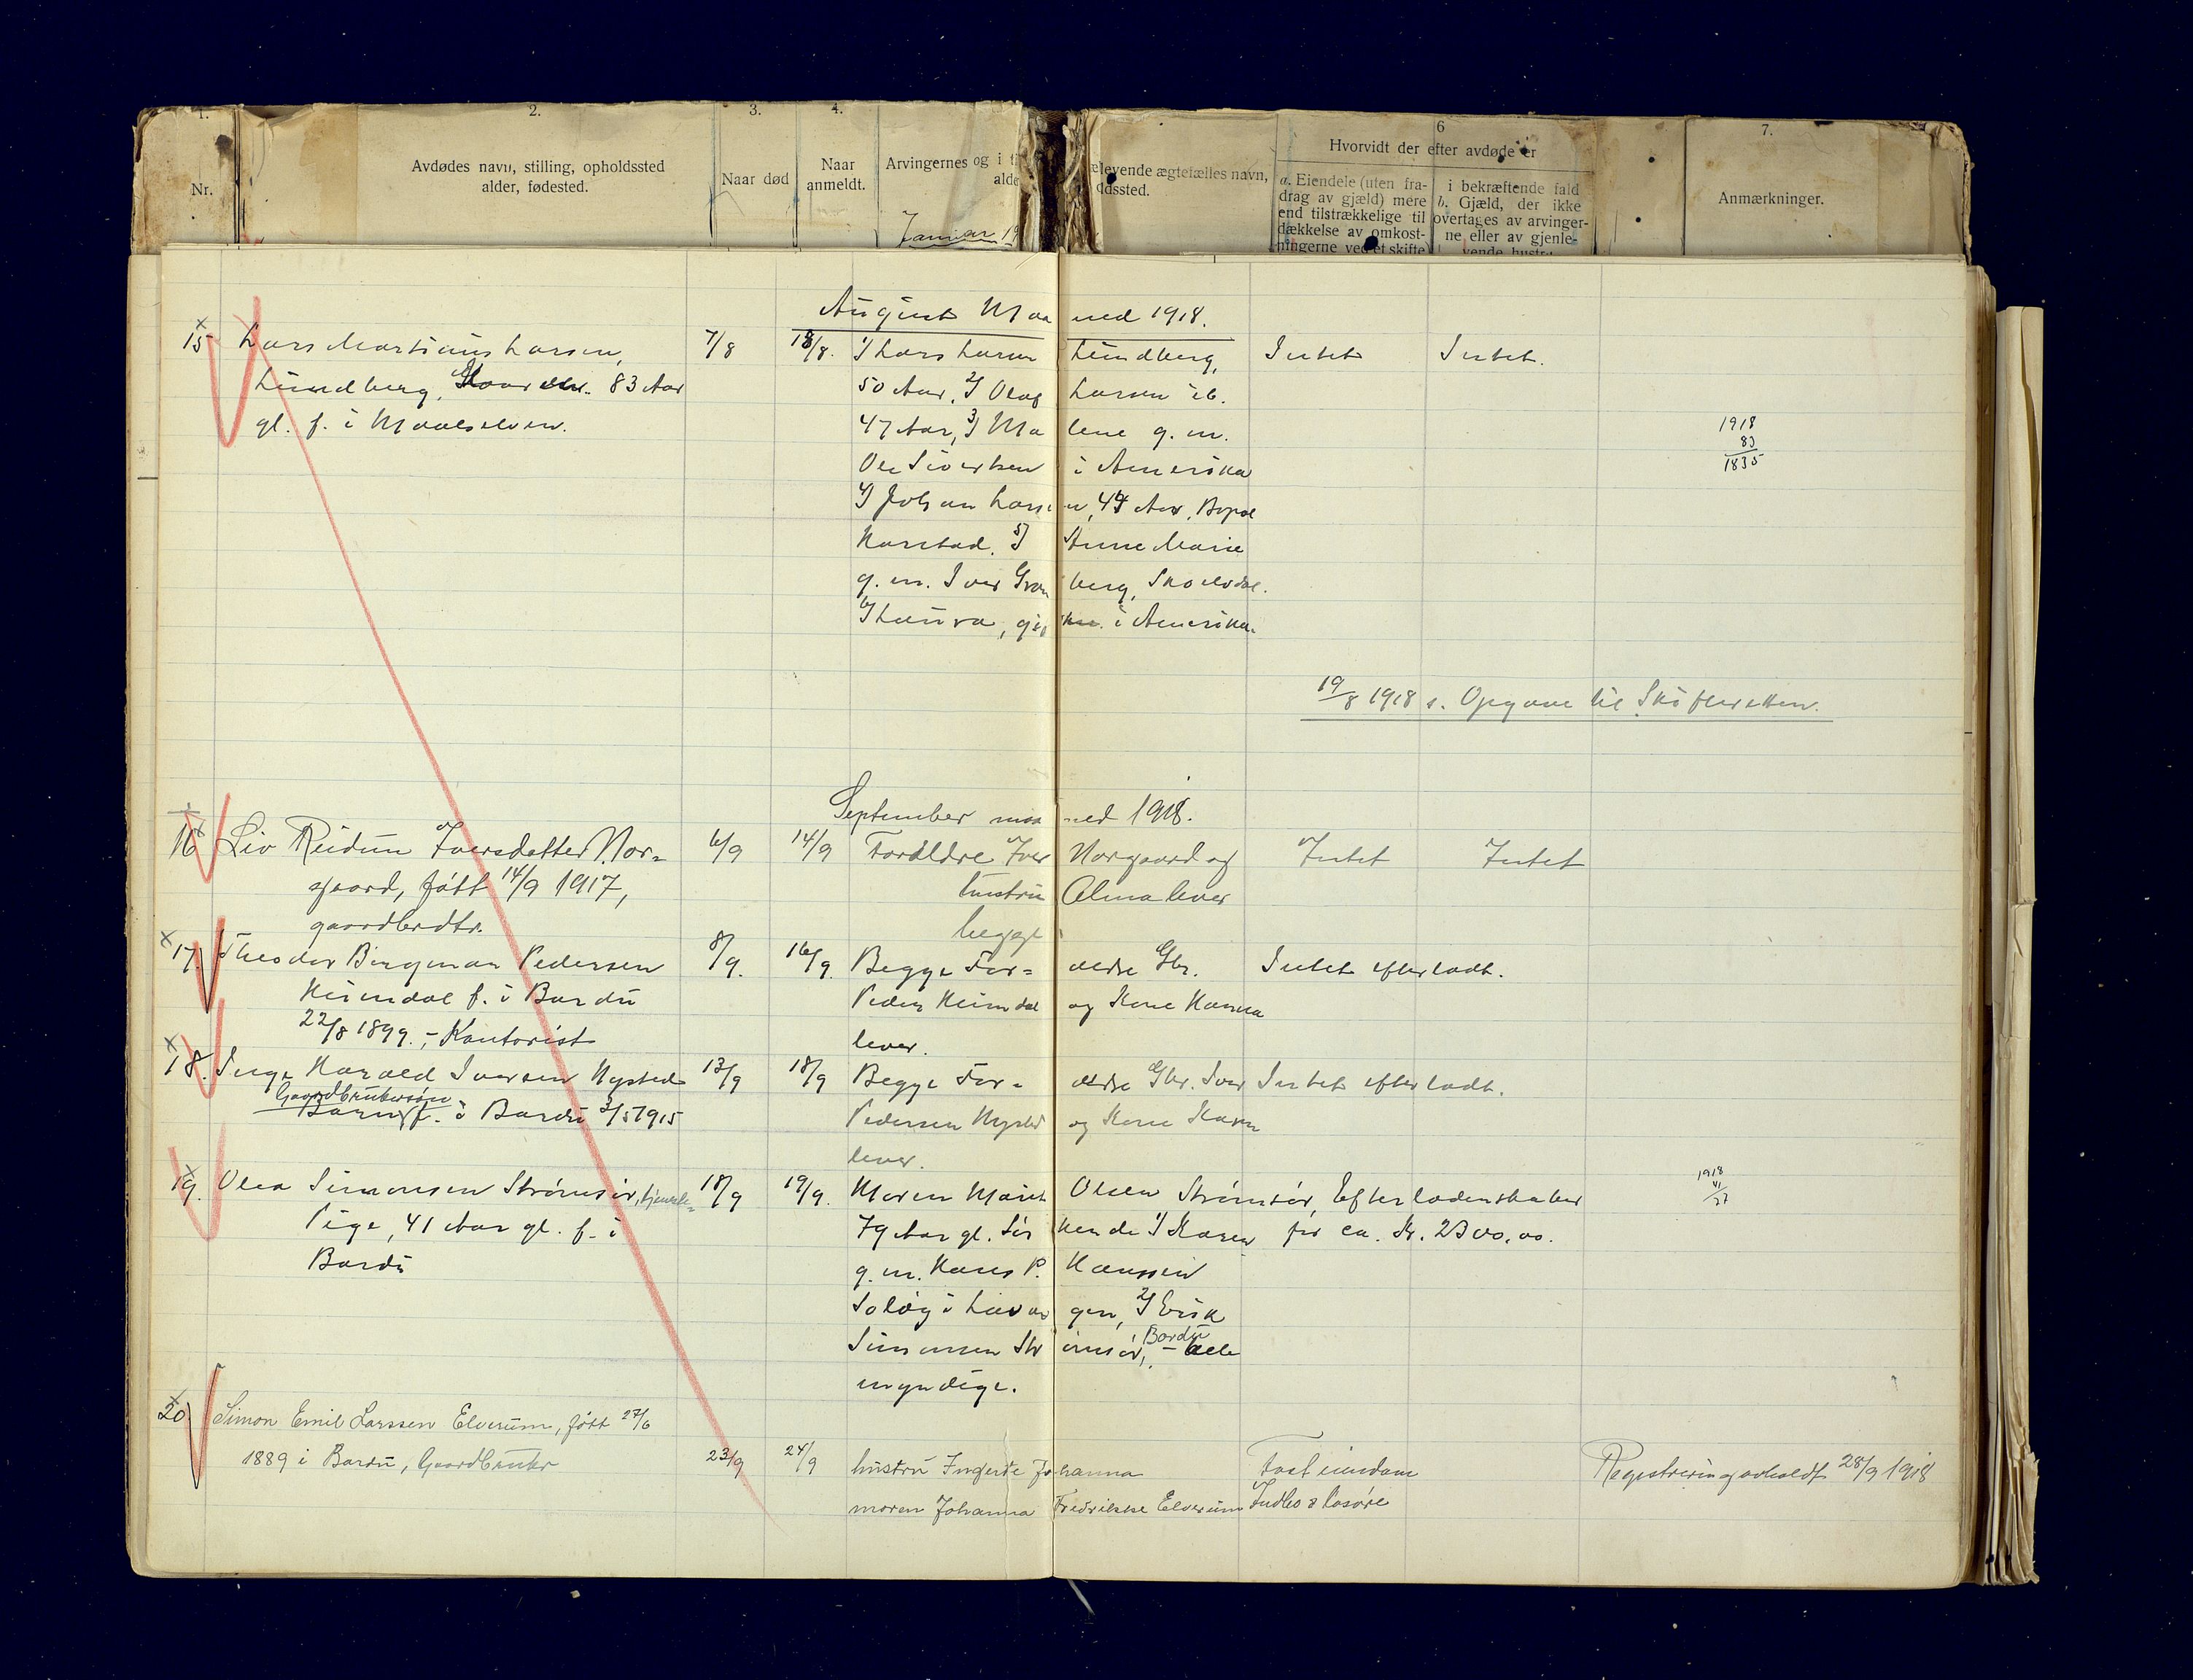 1. 2. 3. 4. 6 7.
Nr. Avdødes navn, stilling, opholdssted alder, fødested. Naar død Naar anmeldt. Arvingernes og i ti
alde
levende ægtefælles navn,
dssted.
Hvorvidt der efter avdøde er
a. Eiendele (uten fra-
drag av gjæld) mere
end tilstrækkelige til
dækkelse av omkost-
ningerne ved et skifte
i bekræftende fald
b. Gjæld, der ikke
overtages av arvinger-
ne eller av gjenle-
vende hustru
Anmærkninger.
Januar 19
August Maaned 1918.
15 Lars Martinus Larsen, 7/8 18/8. 1) Lars Larsen Lundberg, Intet Intet.
Lundberg, 83 Aar 50 Aar, 2) Olaf Larsen ib.
gl. f. i Maalselven. 47 Aar, 3) Malene g. m.
1918
83
1835
Ole Sivertsen i Amerika
4) Johan Larsen, 44 Aar, Bopæl
Harstad. 5) Anne Marie
g. m. Iver Granberg, Skoelvdal.
6) Laura, gift i Amerika.
19/8 1918 s. Opgave til Skifteretten.
September maaned 1918.
16 Liv Reidun Iversdatter Nor- 6/9 14/9 Forældre Iver Norgaard og Intet Intet
gaard, født 14/9 1917, hustru Alma lever
gaardbrdtr. begge
17. Theodor Bergman Pedersen 8/9. 16/9. Begge For- ældre Gbr. Intet efterladt.
Heimdal f. i Bardu Peder Heimdal og Kone Hanna
22/8 1899. - Kontorist lever.
18. Inge Harald Iversen Nysted 13/9 18/9 Begge For- ældre Gbr. Iver Intet efterladt.
Gaardbrukersøn
Barn f. i Bardu 3/5 1915 Pedersen Nysted og Kone Karen
lever.
19. Olea Simonsen Strømsør, tjeneste- 18/9 19/9. Maren Marit Olsen Strømsør, Efterladenskaber
1918
41
77
Pige, 41 Aar gl. f. i 79 Aar gl. Søskende 1) Karen for ca. Kr. 2300.00.
Bardu g. m. Hans P. Hanssen
Soløy i Lavangen, 2) Erik
Simonsen Strømsør, Bardu - alle
myndige.
20 Simon Emil Larssen Elverum, født 27/6
1889 i Bardu, Gaardbruker 23/9 24/9 hustru Ingerte Johanna Fast eiendom Registrering avholdt 28/9 1918
moren Johanna Fredrikke Elverum Indbo & løsøre